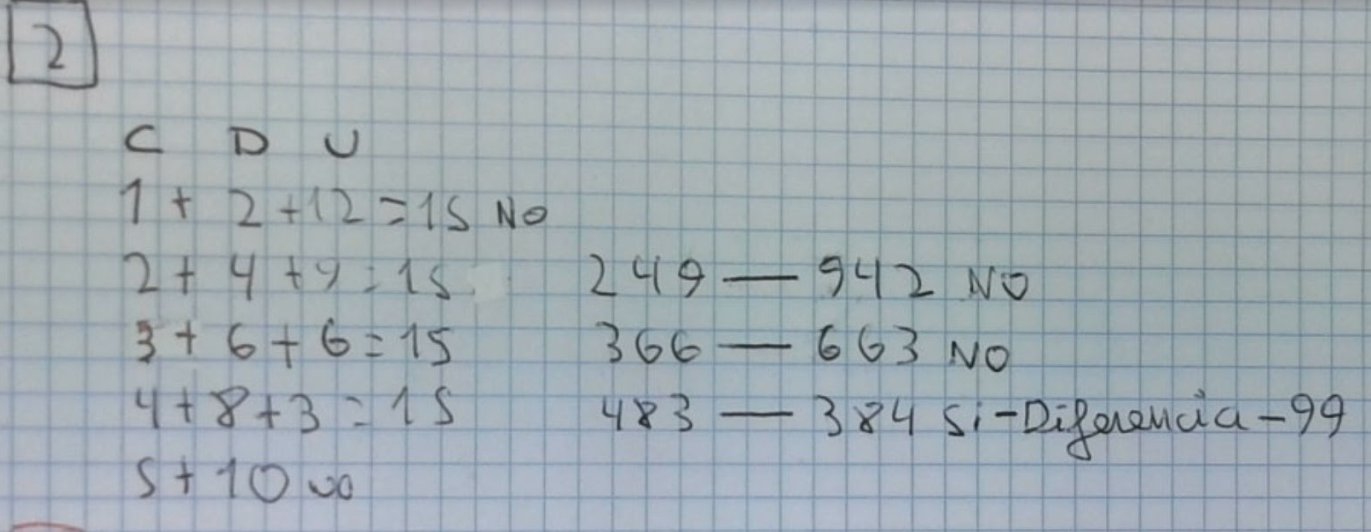 2
C D U
1 + 2 + 12 = 15 NO
2 + 4 + 9 = 15 249 — 942 NO
3 + 6 + 6 = 15 366 — 663 NO
4 + 8 + 3 = 15 483 — 384 Si - Diferencia - 99
5 + 10 no